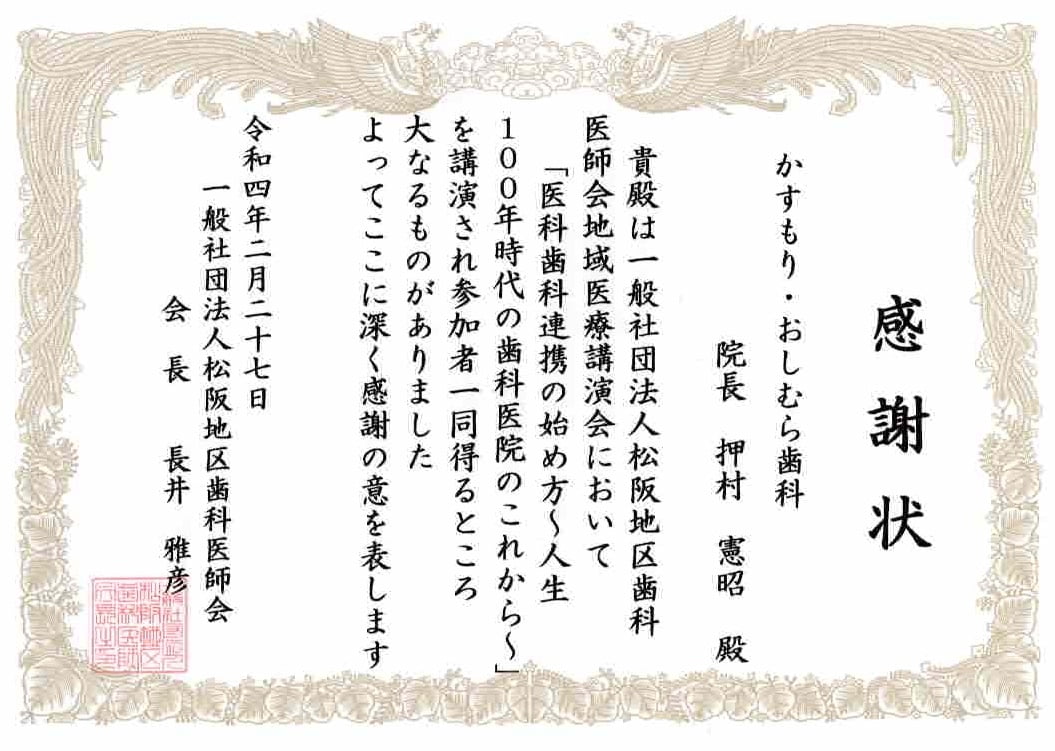 感謝状
かすもり・おしむら歯科
院長 押村 憲昭 殿
貴殿は一般社団法人松阪地区歯科
医師会地域医療講演会において
「医科歯科連携の始め方～人生
１００年時代の歯科医院のこれから～」
を講演され参加者一同得るところ
大なるものがありました
よってここに深く感謝の意を表します
令和四年二月二十七日
一般社団法人松阪地区歯科医師会
会長 長井 雅彦